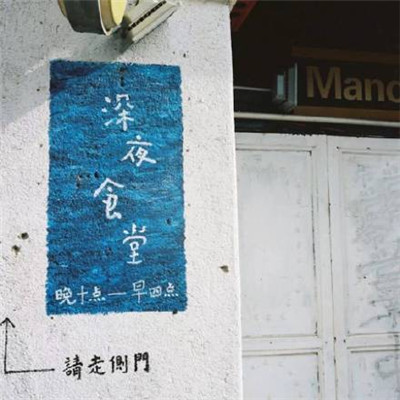 深夜食堂
晚十点—早四点
請走側門
Mano